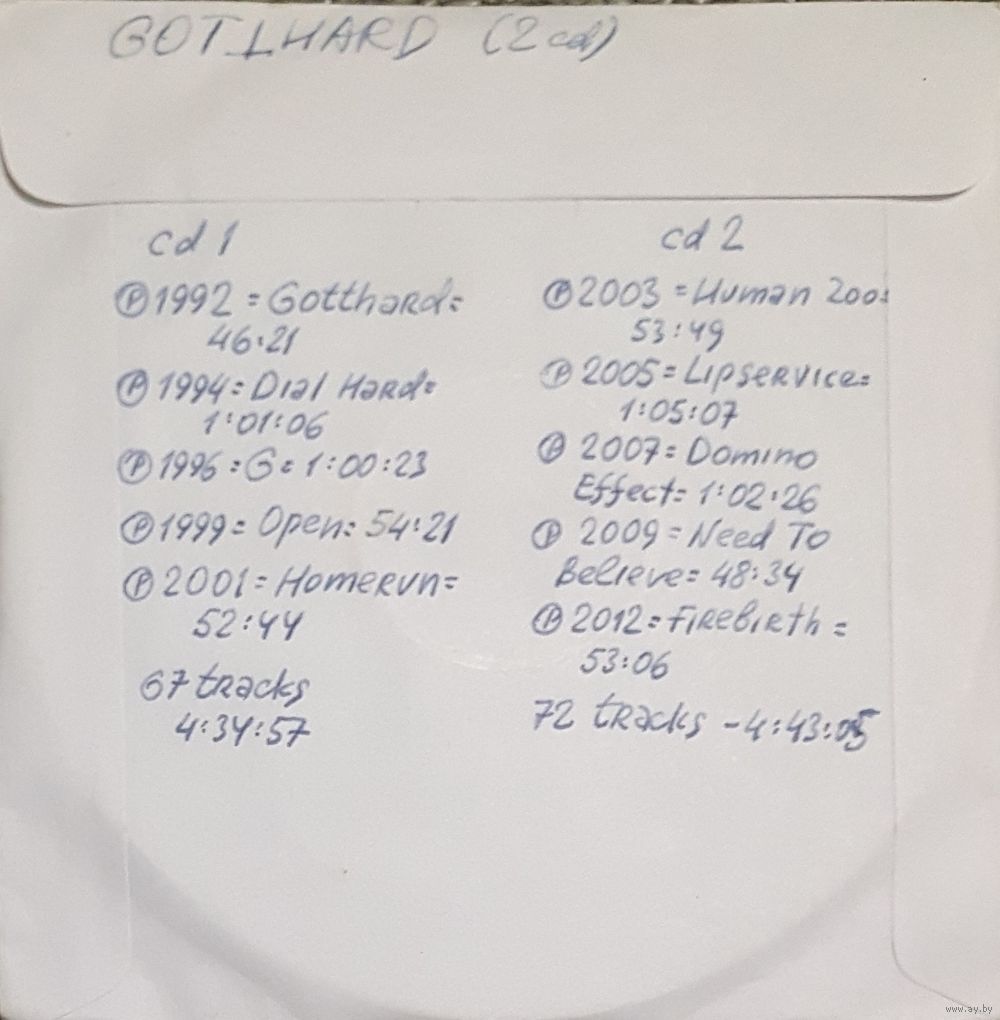 GOTTHARD (2cd)
cd 1
Ⓟ 1992 = Gotthard =
46:21
Ⓟ 1994 = Dial Hard =
1:01:06
Ⓟ 1996 = G = 1:00:23
Ⓟ 1999 = Open = 54:21
Ⓟ 2001 = Homerun =
52:44
67 tracks
4:34:57
cd 2
Ⓟ 2003 = Human Zoo =
53:49
Ⓟ 2005 = Lipservice =
1:05:07
Ⓟ 2007 = Domino
Effect = 1:02:26
Ⓟ 2009 = Need To
Believe = 48:34
Ⓟ 2012 = Firebirth =
53:06
72 tracks - 4:43:05
www.ay.by